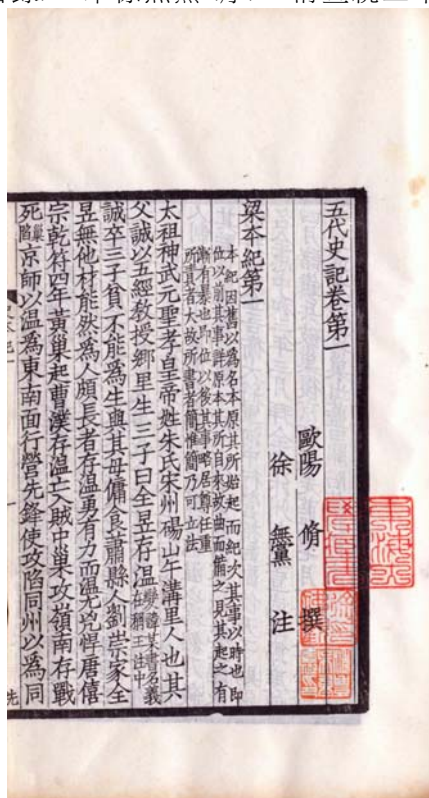 五代史記卷第一
歐陽 脩 撰
徐 無黨 注
梁本紀第一
本紀因舊以爲名本原其所始起而紀次其事以時也即
位以前其事詳原本其所自來故曲而備之見其起之有
漸有暴也即位以後其事略居尊任重
所責者大故所書者簡惟簡乃可立法
太祖神武元聖孝皇帝姓朱氏宋州碭山午溝里人也其
父誠以五經教授鄉里生三子曰全昱存溫
變諱某書名義
在稱王注中
誠卒三子貧不能爲生與其母傭食蕭縣人劉崇家全
昱無他材能然爲人頗長者存溫勇有力而溫尤兇悍唐僖
宗乾符四年黃巢起曹濮存溫亡入賊中巢攻嶺南存戰
死巢陷京師以溫爲東南面行營先鋒使攻陷同州以爲同